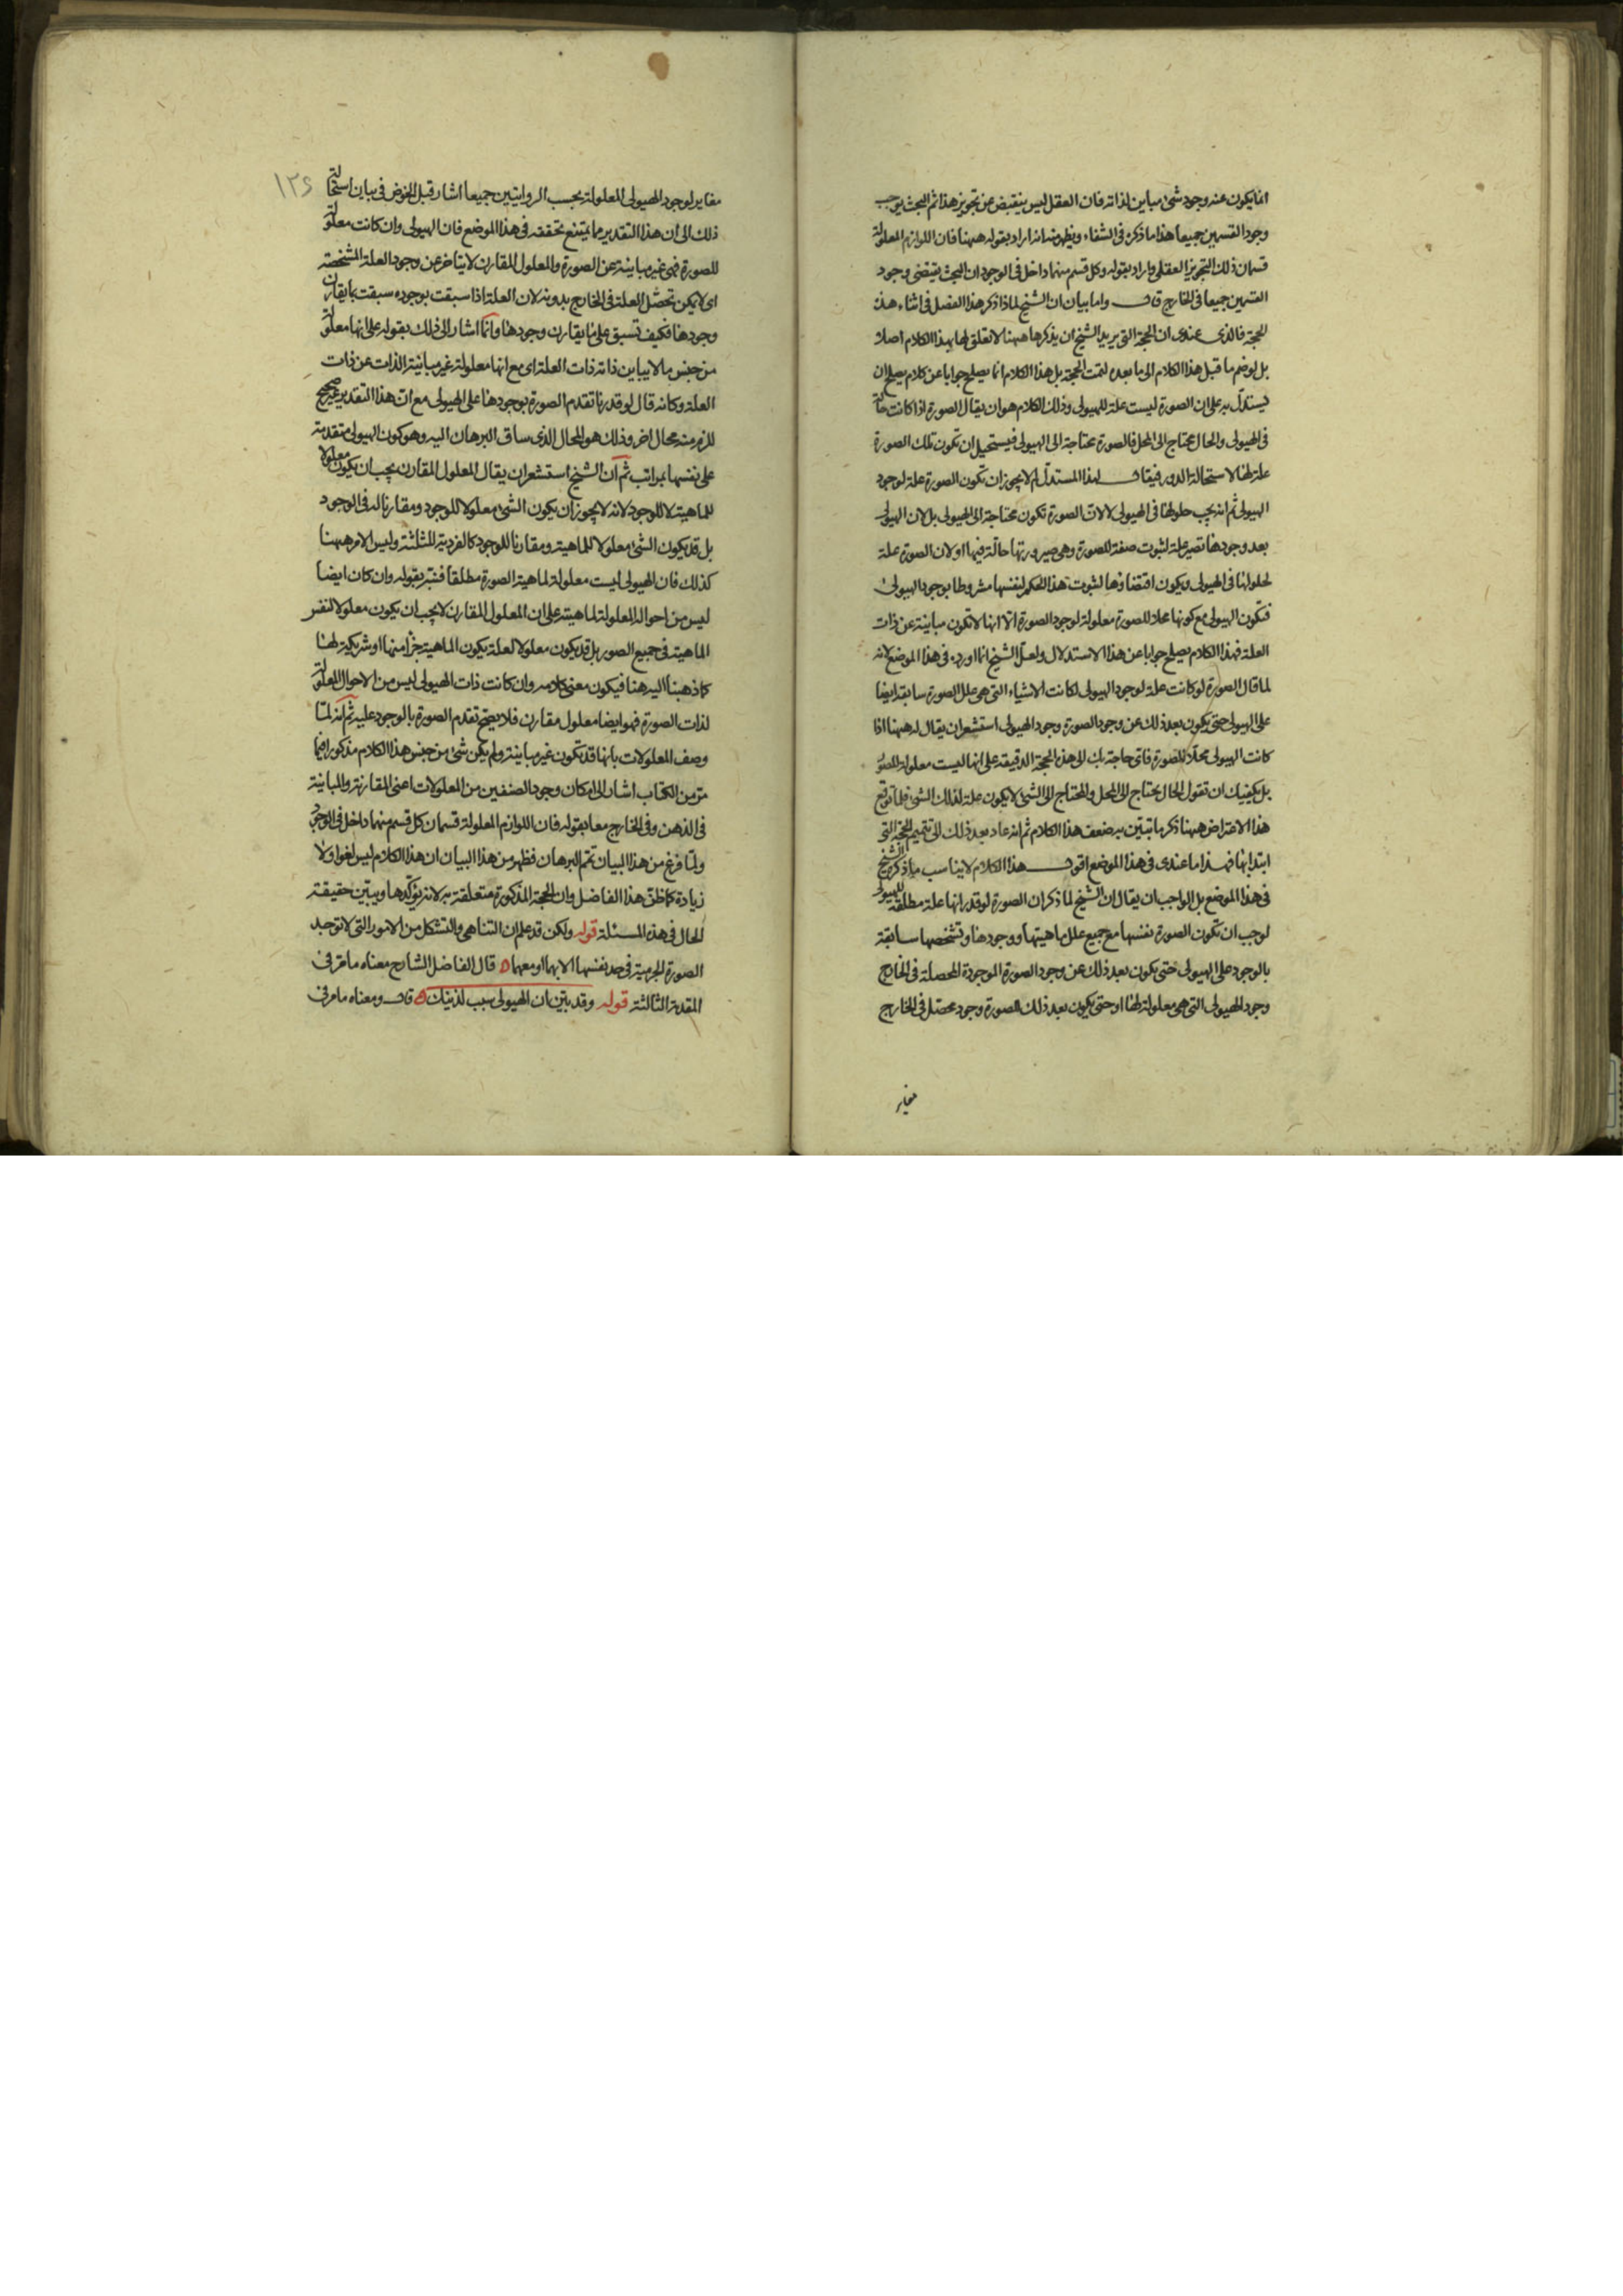 انما يكون عنه وجود شئ مباين لذاته فان العقل ليس ينقبض عن تجويز هذا ثم البحث يوجب
وجود القسمين جميعا هذا ما ذكره فى الشفاء ويظهر منه انه اراد بقوله ههنا فان اللوازم المعلولة
قسمان ذلك التجويز العقلى واراد بقوله وكل قسم منهما داخل فى الوجود ان البحث يقتضى وجود
القسمين جميعا فى الخارج قال واما بيان ان الشيخ لماذا ذكر هذا الفصل فى اثناء هذه
الحجة فالذى عندى ان الحجة التى يريد الشيخ ان يذكرها ههنا لا تعلق لها بهذا الكلام اصلا
بل لو ضم ما قبل هذا الكلام الى ما بعده لتمت الحجة بل هذا الكلام انما يصلح جوابا عن كلام يصلح ان
يستدل به على ان الصورة ليست علة للهيولى وذلك الكلام هو ان يقال الصورة اذا كانت حالة
فى الهيولى والحال محتاج الى المحل فالصورة محتاجة الى الهيولى فيستحيل ان تكون تلك الصورة
علة لها لاستحالة الدور فيقال لهذا المستدل لم لا يجوز ان تكون الصورة علة لوجود
الهيولى ثم انه يجب حلولها فى الهيولى لا لان الصورة تكون محتاجة الى الهيولى بل لان الهيولى
بعد وجودها تصير علة لثبوت صفة للصورة وهى صيرورتها حالة فيها او لان الصورة علة
لحلولها فى الهيولى ويكون اقتضاؤها لثبوت هذا الحكم لنفسها مشروطا بوجود الهيولى
فتكون الهيولى مع كونها محلا للصورة معلولة لوجود الصورة الا انها لا تكون مباينة عن ذات
العلة فهذا الكلام يصلح جوابا عن هذا الاستدلال ولعل الشيخ انما اورده فى هذا الموضع لانه
لما قال الصورة لو كانت علة لوجود الهيولى لكانت الاشياء التى هى علل الصورة سابقة ايضا
على الهيولى حتى يكون بعد ذلك عن وجود الصورة وجود الهيولى استشعر ان يقال له ههنا اذا
كانت الهيولى محلا للصورة فاى حاجة بك الى هذه الحجة الدقيقة على انها ليست معلولة للصورة
بل يكفيك ان تقول الحال يحتاج الى المحل والمحتاج الى الشئ لا يكون علة لذلك الشئ فلما توقع
هذا الاعتراض ههنا ذكر ما تبين به ضعف هذا الكلام ثم انه عاد بعد ذلك الى تتميم الحجة التى
ابتدا بها فهذا ما عندى فى هذا الموضع اقول هذا الكلام لا يناسب ما ذكره الشيخ
فى هذا الموضع بل الواجب ان يقال ان الشيخ لما ذكر ان الصورة لو قدر انها علة مطلقة للهيولى
لوجب ان تكون الصورة نفسها مع جميع علل ماهيتها ووجودها وتشخصها سابقة
بالوجود على الهيولى حتى يكون بعد ذلك عن وجود الصورة الموجودة المحصلة فى الخارج
وجود الهيولى التى هى معلولة لها او حتى يكون بعد ذلك للصورة وجود محصل فى الخارج
مغاير
١٢٤
مغاير لوجود الهيولى المعلولة بحسب الروايتين جميعا اشار قبل الخوض فى بيان استحالة
ذلك الى ان هذا التقدير مما يمتنع تحققه فى هذا الموضع فان الهيولى وان كانت معلولة
للصورة فهى غير مباينة عن الصورة والمعلول المقارن لا يتاخر عن وجود العلة المشخصة
اى لا يمكن تحصل العلة فى الخارج بدونه لان العلة اذا سبقت بوجوده سبقت بما يقارن
وجودها فكيف تسبق على ما يقارن وجودها وانما اشار الى ذلك بقوله على انها معلولة
من جنس ما لا يباين ذاته ذات العلة اى مع انها معلولة غير مباينة الذات عن ذات
العلة وكانه قال لو قدرنا تقدم الصورة بوجودها على الهيولى مع ان هذا التقدير غير صحيح
للزم منه محال اخر وذلك هو المحال الذى ساق البرهان اليه وهو كون الهيولى متقدمة
على نفسها بمراتب ثم ان الشيخ استشعر ان يقال المعلول المقارن يجب ان يكون معلولا
للماهية لا للوجود لانه لا يجوز ان يكون الشئ معلولا للوجود ومقارنا له فى الوجود
بل قد يكون الشئ معلولا للماهية ومقارنا للوجود كالفردية للثلثة وليس الامر ههنا
كذلك فان الهيولى ليست معلولة لماهية الصورة مطلقا فنبه بقوله وان كان ايضا
ليس من احواله المعلولة لماهيته على ان المعلول المقارن لا يجب ان يكون معلولا لنفس
الماهية فى جميع الصور بل قد يكون معلولا لعلة يكون الماهية جزأ منها او شريكة لها
كما ذهبنا اليه هنا فيكون معنى كلامه وان كانت ذات الهيولى ليس من الاحوال المعلولة
لذات الصورة فهو ايضا معلول مقارن فلا يصح تقدم الصورة بالوجود عليه ثم انه لما
وصف المعلولات بانها قد تكون غير مباينة ولم يكن شئ من جنس هذا الكلام مذكورا فيما
مر من الكتاب اشار الى امكان وجود الصنفين من المعلولات اعنى المقارنة والمباينة
فى الذهن وفى الخارج معا بقوله فان اللوازم المعلولة قسمان كل قسم منهما داخل فى الوجود
ولما فرغ من هذا البيان تمم البرهان فظهر من هذا البيان ان هذا الكلام ليس لغوا ولا
زيادة كما ظن هذا الفاضل وان الحجة المذكورة متعلقة به لانه يؤكدها ويبين حقيقة
الحال فى هذه المسئلة قوله ولكن قد علم ان التناهى والتشكل من الامور التى لا توجد
الصورة الجرمية فى حد نفسها الا بهما او معهما ه قال الفاضل الشارح معناه ما مر فى
المقدمة الثالثة قوله وقد بين ان الهيولى سبب لذينك ه قال ومعناه ما مر فى